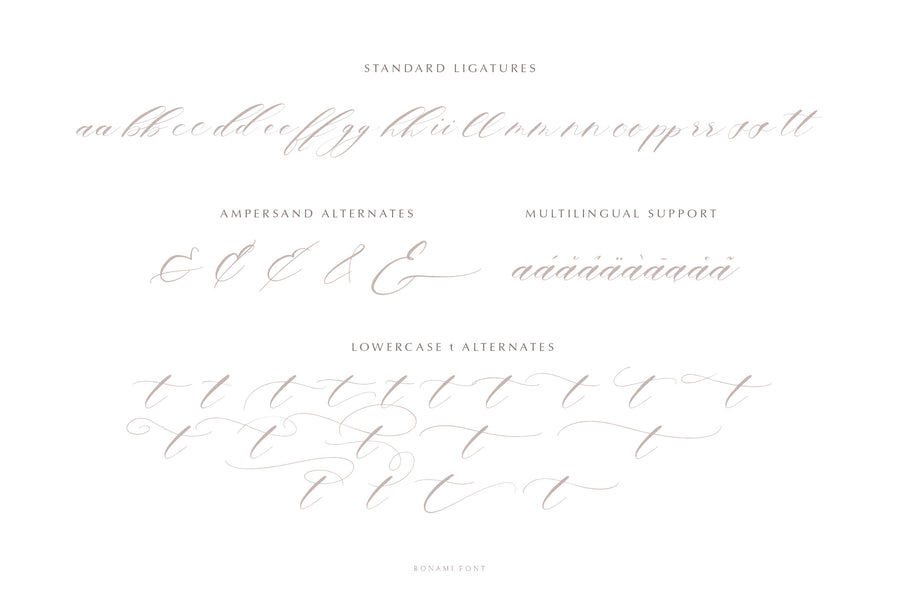 STANDARD LIGATURES
aa bb cc dd ee ff gg hh ii ll mm nn oo pp rr ss tt
AMPERSAND ALTERNATES
MULTILINGUAL SUPPORT
& & & & &
LOWERCASE t ALTERNATES
t t t t t t t t t t
t t t t t
t t t t
BONAMI FONT